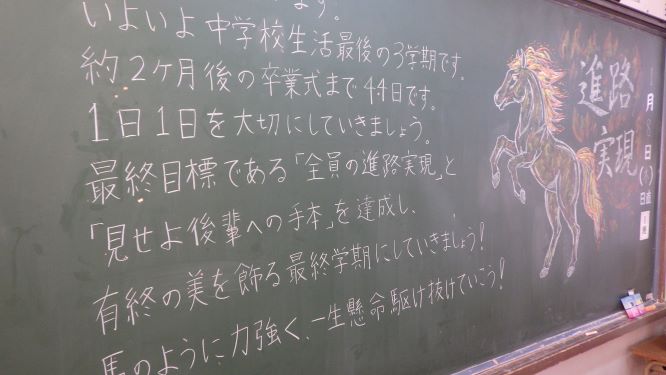 ます。
いよいよ中学校生活最後の3学期です。
約2ケ月後の卒業式まで44日です。
1日1日を大切にしていきましょう。
最終目標である「全員の進路実現」と
「見せよ後輩への手本」を達成し、
有終の美を飾る最終学期にしていきましょう!
馬のように力強く、一生懸命駆け抜けていこう!
進路
実現
月
日
日直